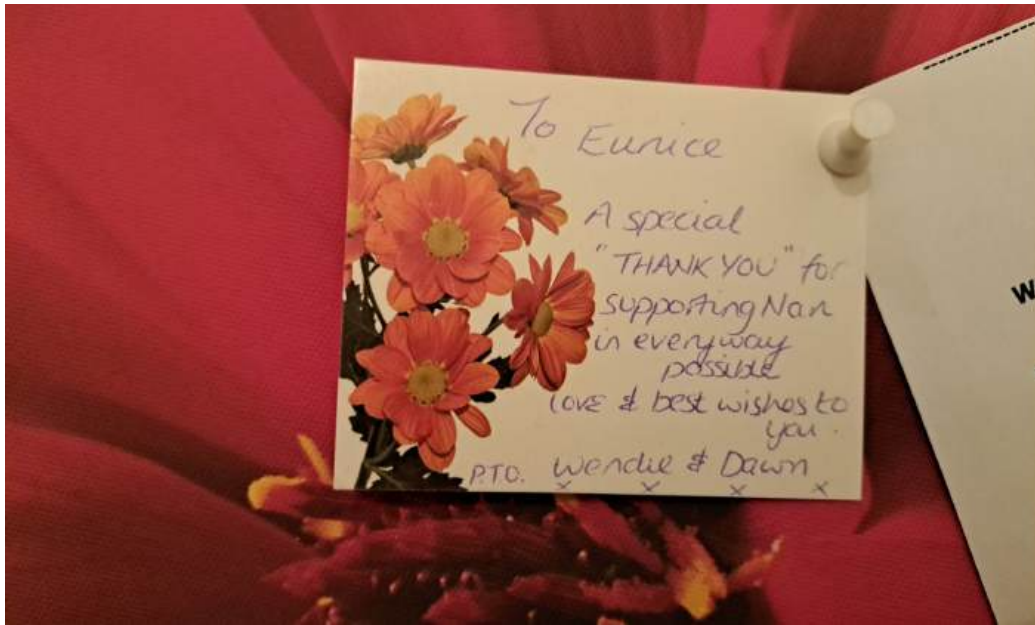 To Eunice
A special
"THANK YOU" for
supporting Nan
in everyway
possible
love & best wishes to
you.
P.T.O. Wendie & Dawn
x x x x
W